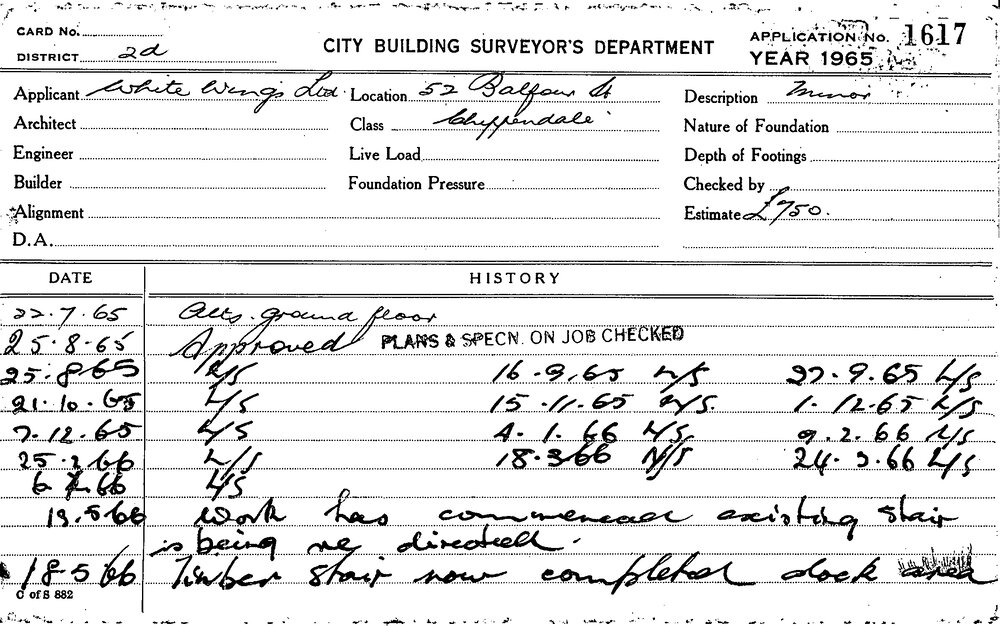 CARD No.
DISTRICT 2d
CITY BUILDING SURVEYOR'S DEPARTMENT
APPLICATION No. 1617
YEAR 1965
Applicant White Wings Ltd. Location 52 Balfour St Description Minor
Architect Class Chippendale Nature of Foundation
Engineer Live Load Depth of Footings
Builder Foundation Pressure Checked by
Alignment Estimate £750.
D.A.
DATE HISTORY
22.7.65 Alts. ground floor
25.8.65 Approved PLANS & SPECN. ON JOB CHECKED
25.8.65 N/S 16.9.65 N/S 27.9.65 N/S
21.10.65 N/S 15.11.65 N/S. 1.12.65 N/S
7.12.65 N/S 4.1.66 N/S 9.2.66 N/S
25.2.66 N/S 18.3.66 N/S 24.3.66 N/S
6.4.66 N/S
13.5.66 Work has commenced existing stair
is being re directed.
18.5.66 Timber stair now completed dock area
C of S 882